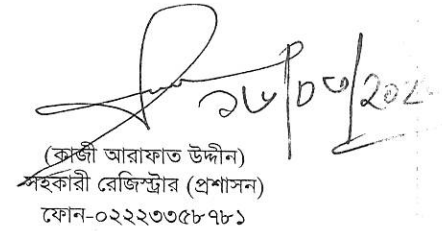 (কাজী আরাফাত উদ্দীন)
সহকারী রেজিস্ট্রার (প্রশাসন)
ফোন-০২২২৩৩৫৮৭৮১